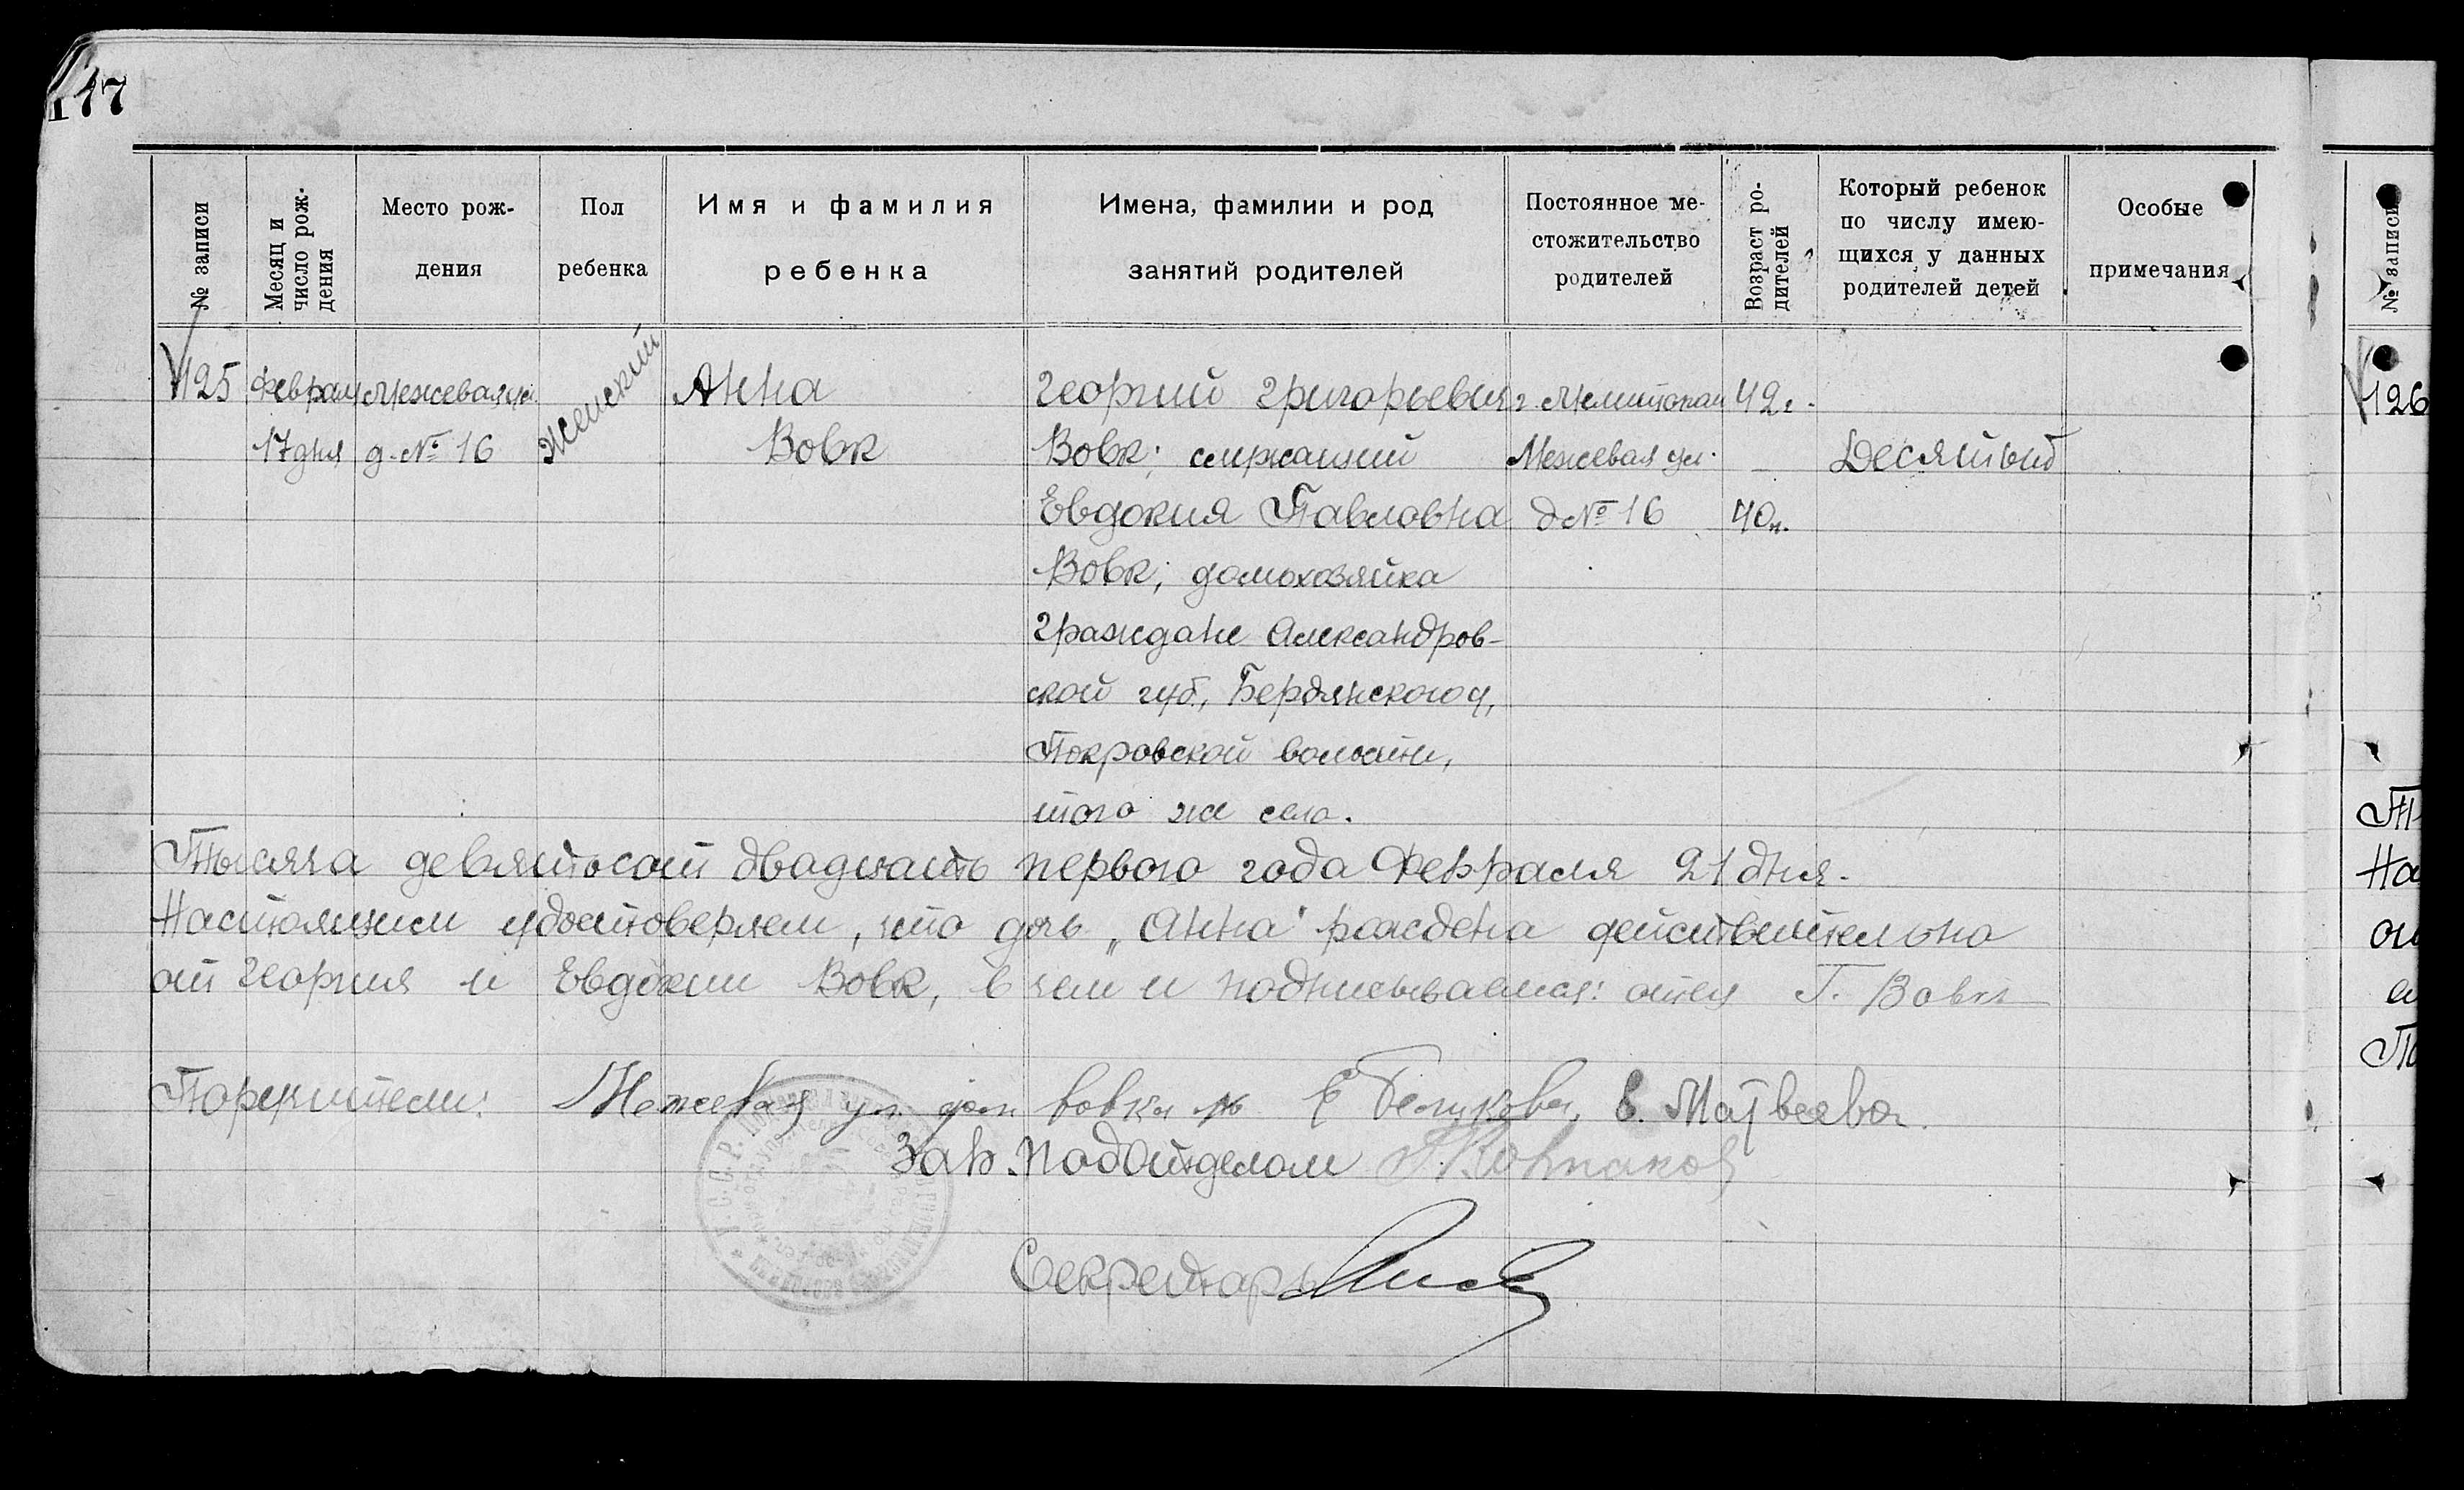 147
№ записи
Месяц и число рождения
Место рождения
Пол ребенка
Имя и фамилия ребенка
Имена, фамилии и род занятий родителей
Постоянное местожительство родителей
Возраст родителей
Который ребенок по числу имеющихся у данных родителей детей
Особые примечания
№ записи
125 Февраля Межевая ул. Женский Анна Георгий Григорьевич г. Мелитополь 42 г.
17 дня д. № 16 Вовк Вовк; служащий Межевая ул. — Десятый
Евдокия Павловна д № 16 40 л.
Вовк; домохозяйка
граждане Александров-
ской губ., Бердянского у,
Покровской волости,
того же села.
Тысяча девятьсот двадцать первого года Февраля 21 дня.
Настоящим удостоверяем, что дочь „Анна" рождена действительно
от Георгия и Евдокии Вовк, в чем и подписываемся: отец Г. Вовк
Поручители: Межевая ул. дом Вовка № Е Беликова, Е. Матвеева.
Зав. Подотделом
Секретарь
126